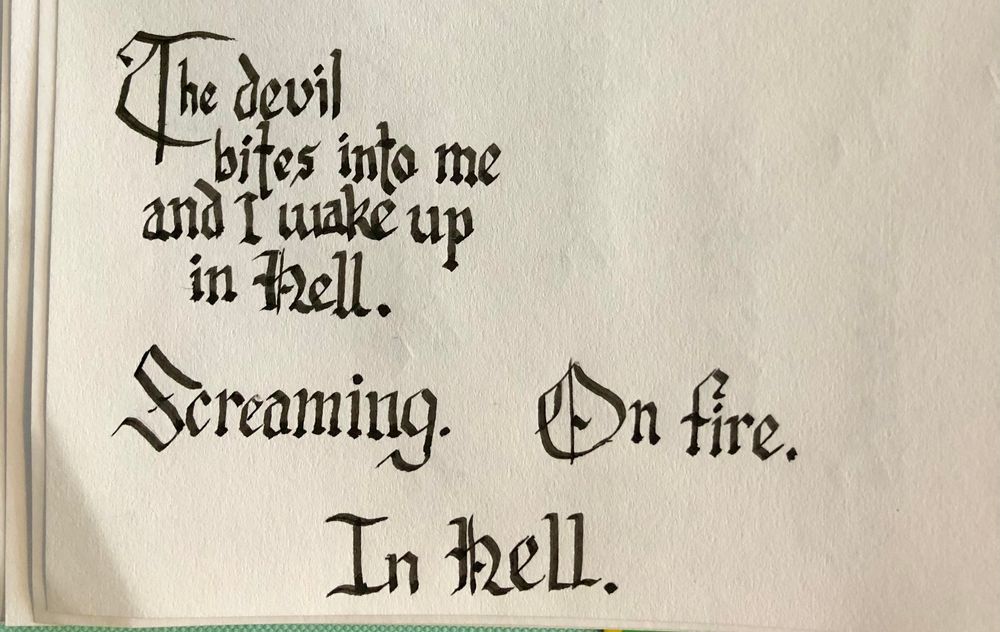 The devil
bites into me
and I wake up
in hell.
Screaming. On fire.
In hell.